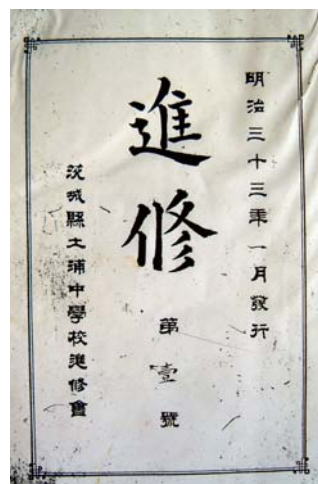 明治三十三年一月發行
進修
第壹號
茨城縣土浦中學校進修會